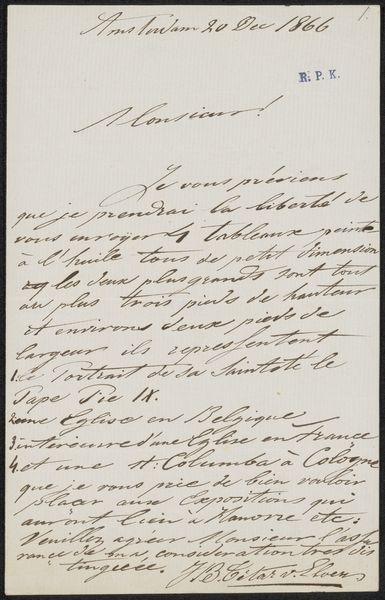 1.
Amsterdam 20 Dec 1866
R. P. K.
Monsieur!
Je vous préviens
que je prendrai la liberté de
vous envoyer 4 tableaux peints
à l'huile tous de petit dimension
les deux plus grands sont tout
au plus trois pieds de hauteur
et environs deux pieds de
largeur ils representent
1. le Portrait de Sa Sainteté le
Pape Pie IX.
2 une Eglise en Belgique
3 interieure d'une Eglise en France
4. et une St. Columba à Cologne
que je vous prie de bien vouloir
placer aux Expositions qui
auront lieu à Hanovre etc:
Veuillez agreer Monsieur l'assu
rance de ma consideration tres dis
tinguée. J B Tétar v. Elven